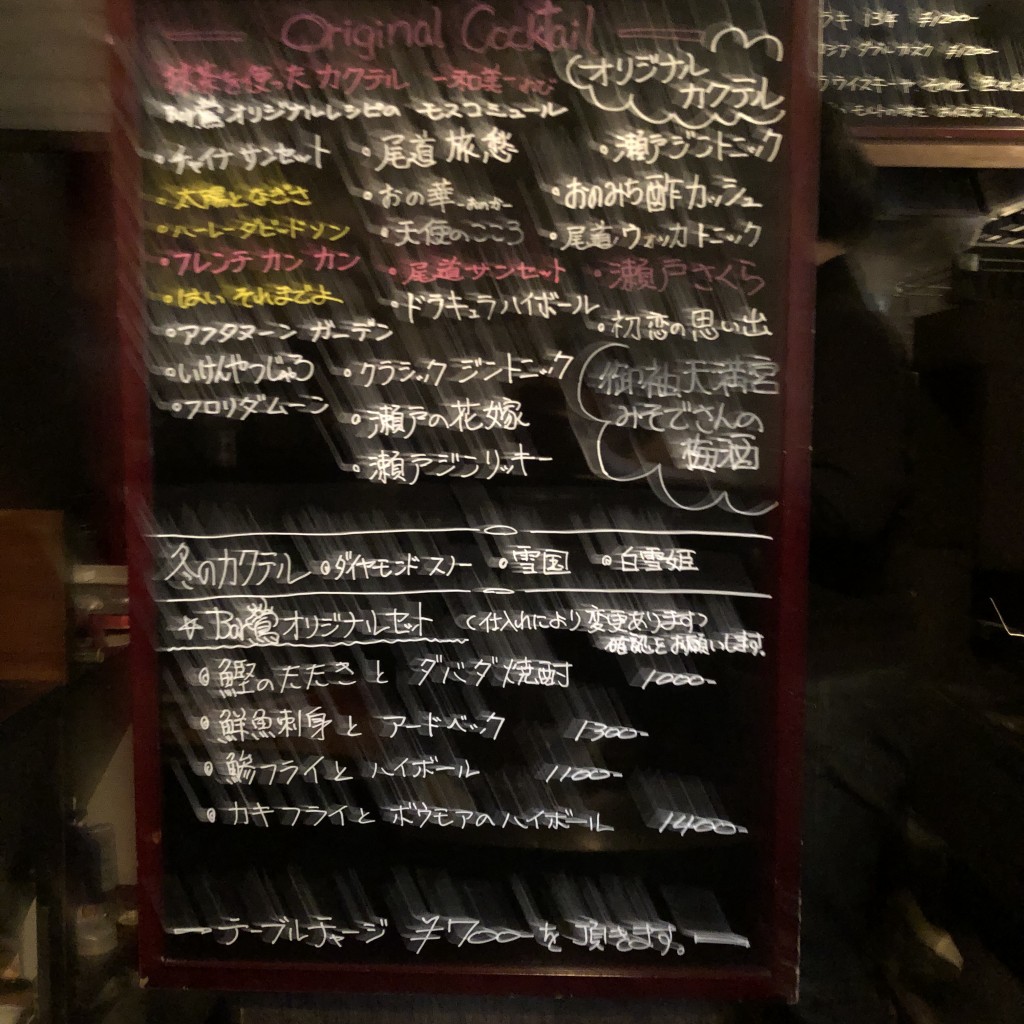 Original Cocktail
抹茶を使ったカクテル ー和美ー
オリジナルレシピの モスコミュール
・チャイナサンセット
・太陽となぎさ
・ハーレーダビッドソン
・フレンチ カン カン
・はい それまでよ
・アフタヌーン ガーデン
・いけんやつじゃろ
・フロリダムーン
・尾道旅愁
・おの華
・天使のこころ
・尾道サンセット
・ドラキュラハイボール
・クラシック ジントニック
・瀬戸の花嫁
・瀬戸ジンリッキー
オリジナル
カクテル
・瀬戸ジントニック
・おのみち酢カッシュ
・尾道ウォッカトニック
・瀬戸さくら
・初恋の思い出
御袖天満宮
みそでさんの
梅酒
冬のカクテル ・ダイヤモンド スノー ・雪国 ・白雪姫
☆ Bar鶯オリジナルセット (仕入れにより変更あります
確認をお願いします。
・鰹のたたきと ダバダ焼酎 1000-
・鮮魚刺身と アードベック 1300-
・鯵フライと ハイボール 1100-
・カキフライと ボウモアのハイボール 1400-
ー テーブルチャージ ¥700- を頂きます。ー